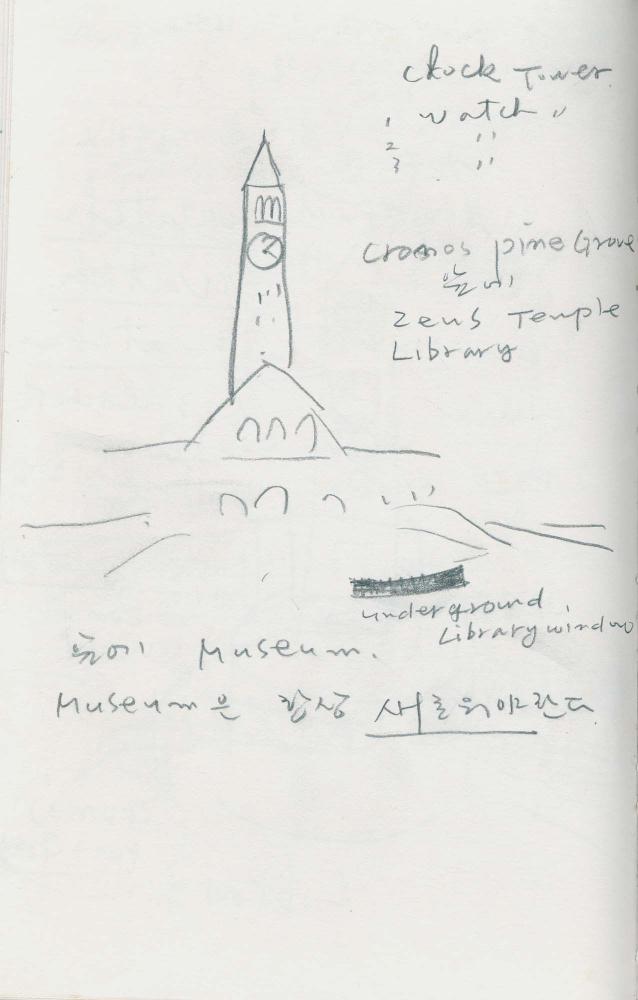 Clock Tower
1 watch "
2 "
3 "
Cronos pine Grove
옆에
Zeus Temple
Library
underground
Library window
옆에 Museum.
Museum은 항상 새로워야 한다